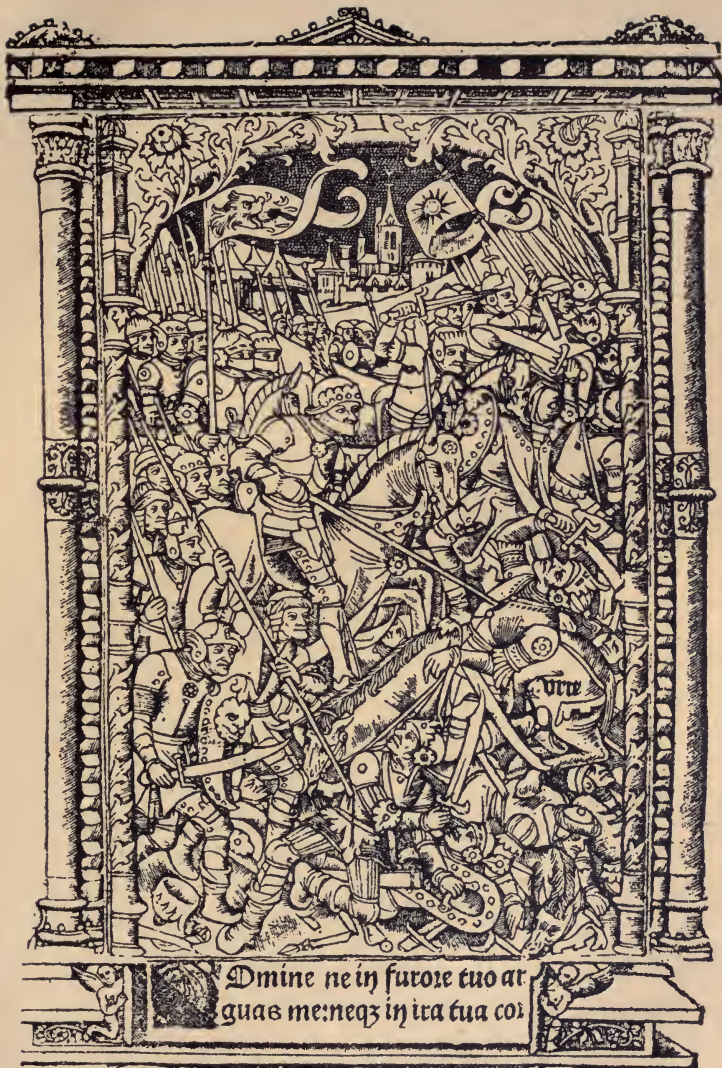 vrie
DOmine ne in furore tuo ar
guas me:neqꝫ in ira tua cor